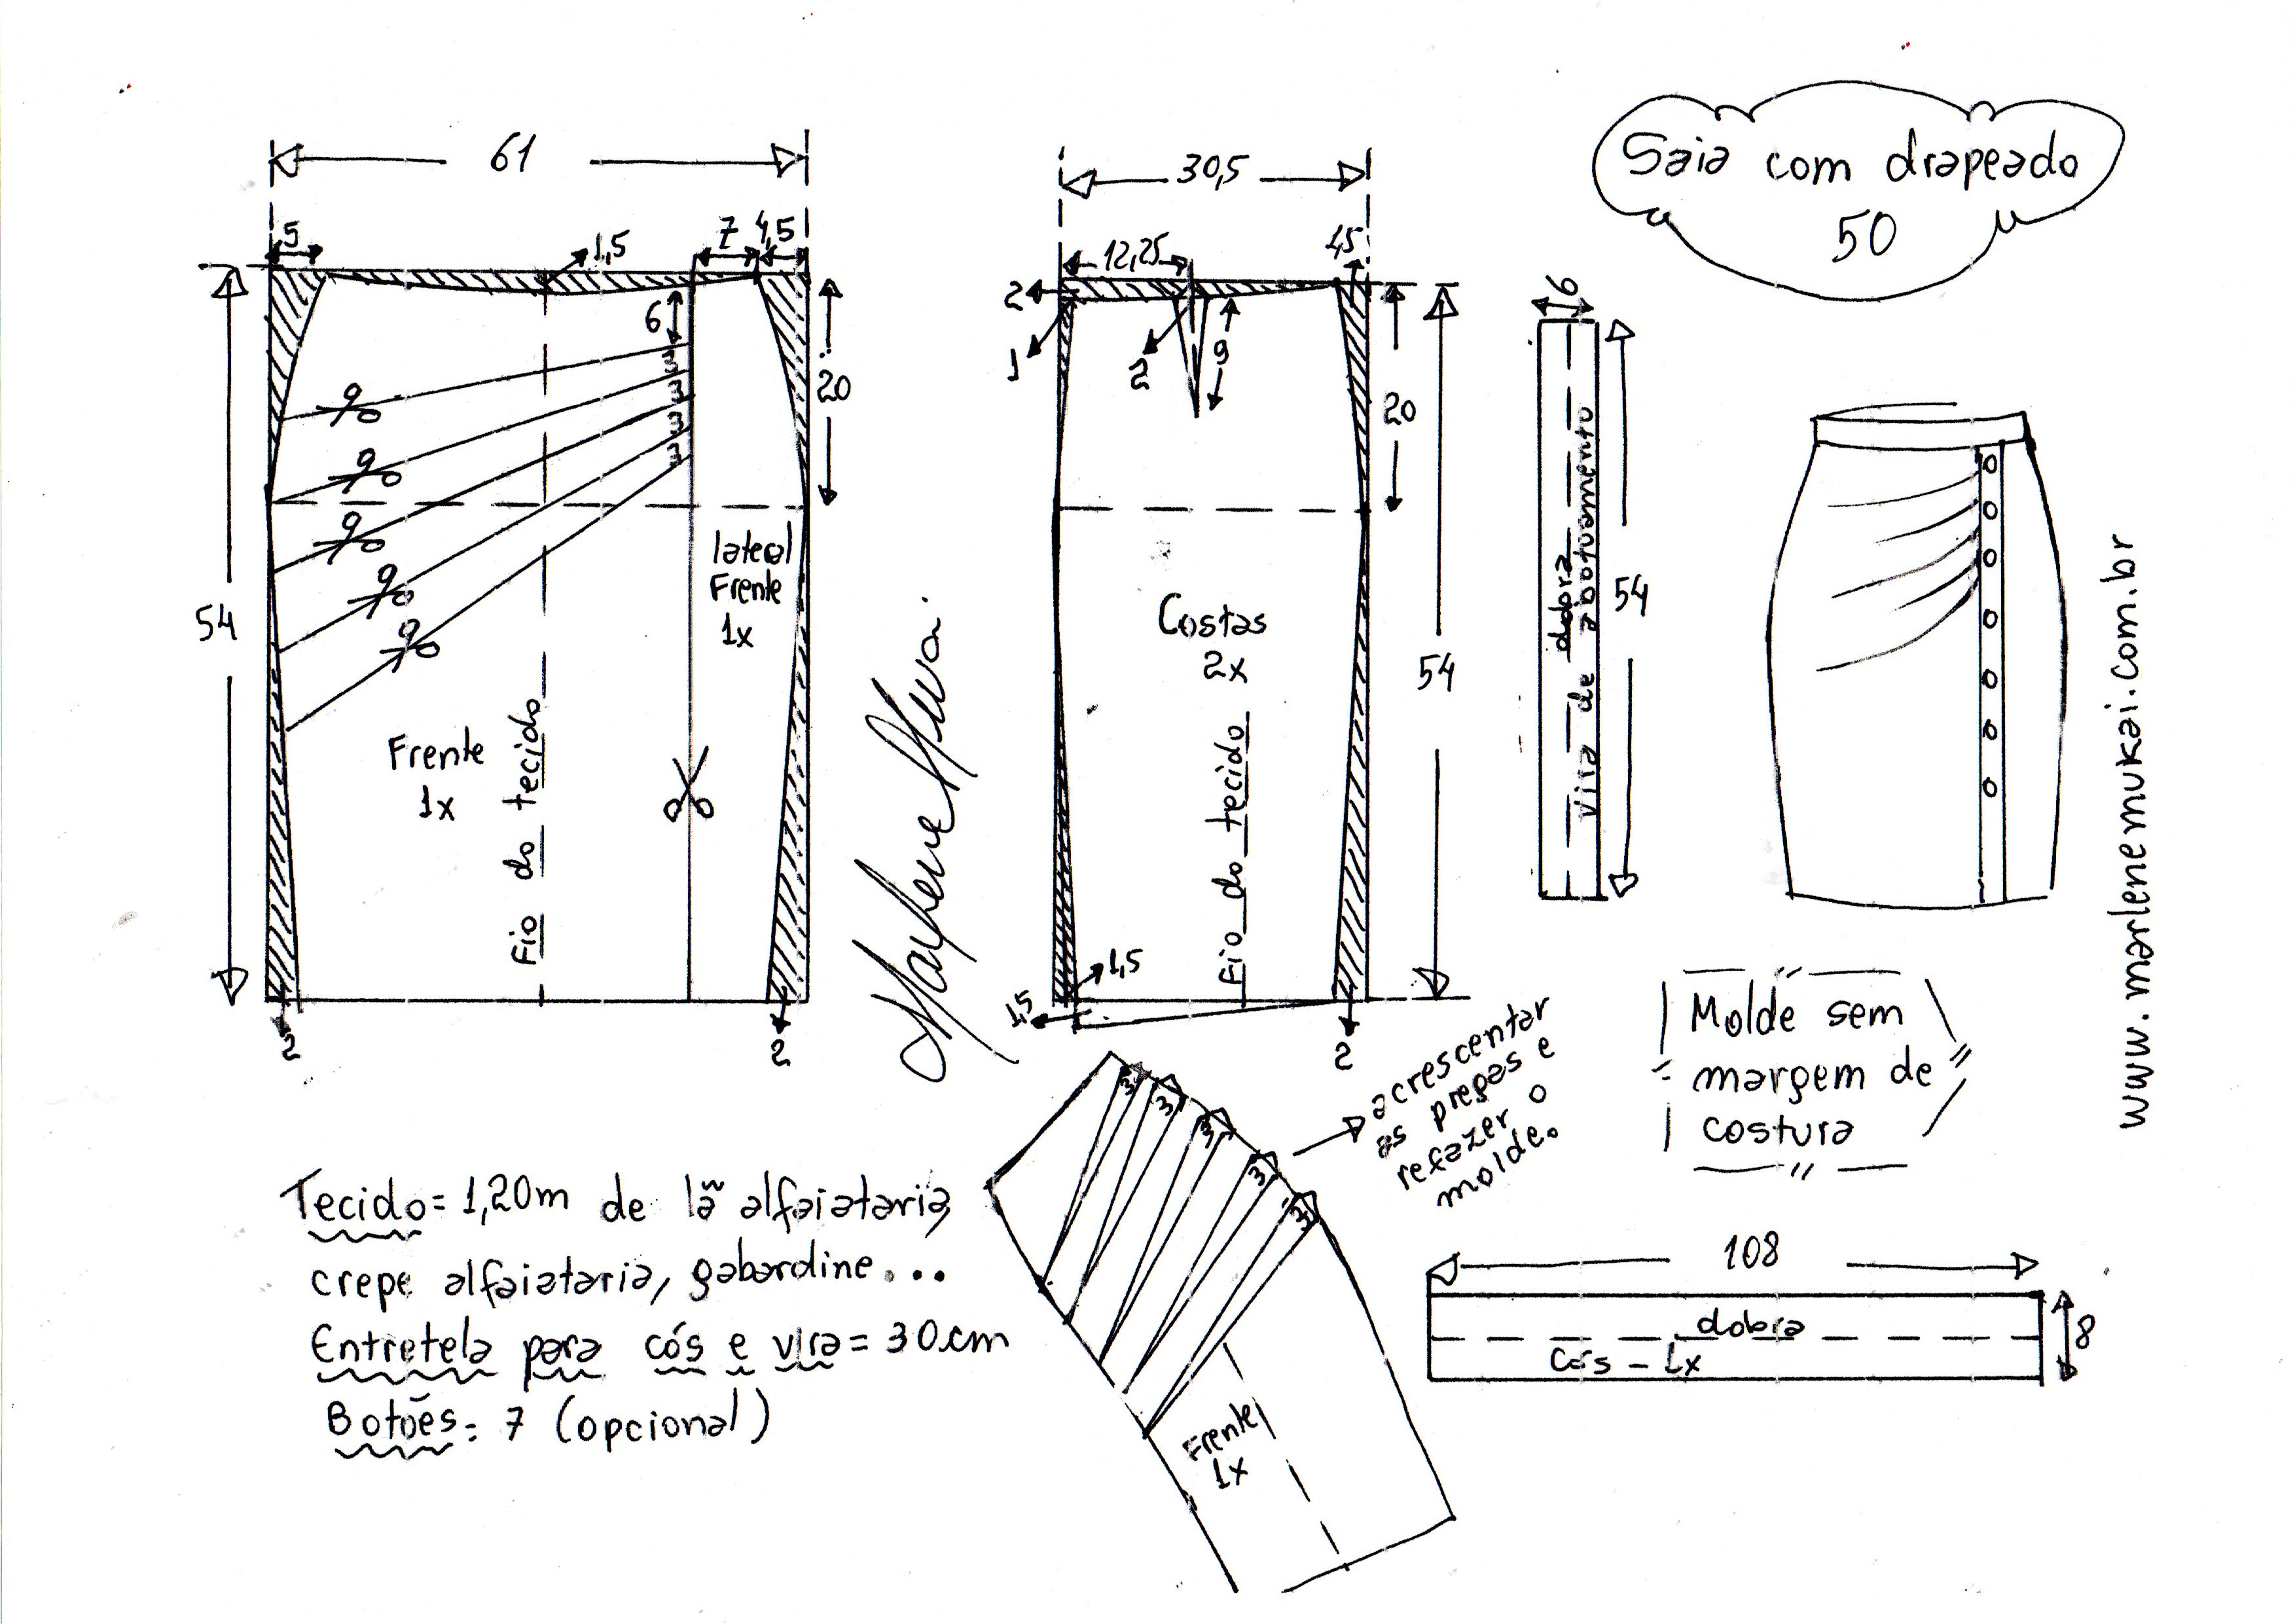 Saia com drapeado
50
61
5
1,5
7
4,5
6
3
3
3
3
20
54
lateral
Frente
1x
Frente
1x
Fio do tecido
2
2
30,5
12,25
4,5
2
1
2
9
20
54
Costas
2x
Fio do tecido
1,5
1,5
2
6
54
dobra
vira de abotuamento
www.marlenemukai.com.br
Molde sem
margem de
costura
acrescentar
as pregas e
refazer o
molde.
3
3
3
3
3
Frente
1x
108
dobra
Cós - 1x
8
Tecido = 1,20m de lã alfaiataria,
crepe alfaiataria, gabardine...
Entretela para cós e vira = 30cm
Botões: 7 (opcional)